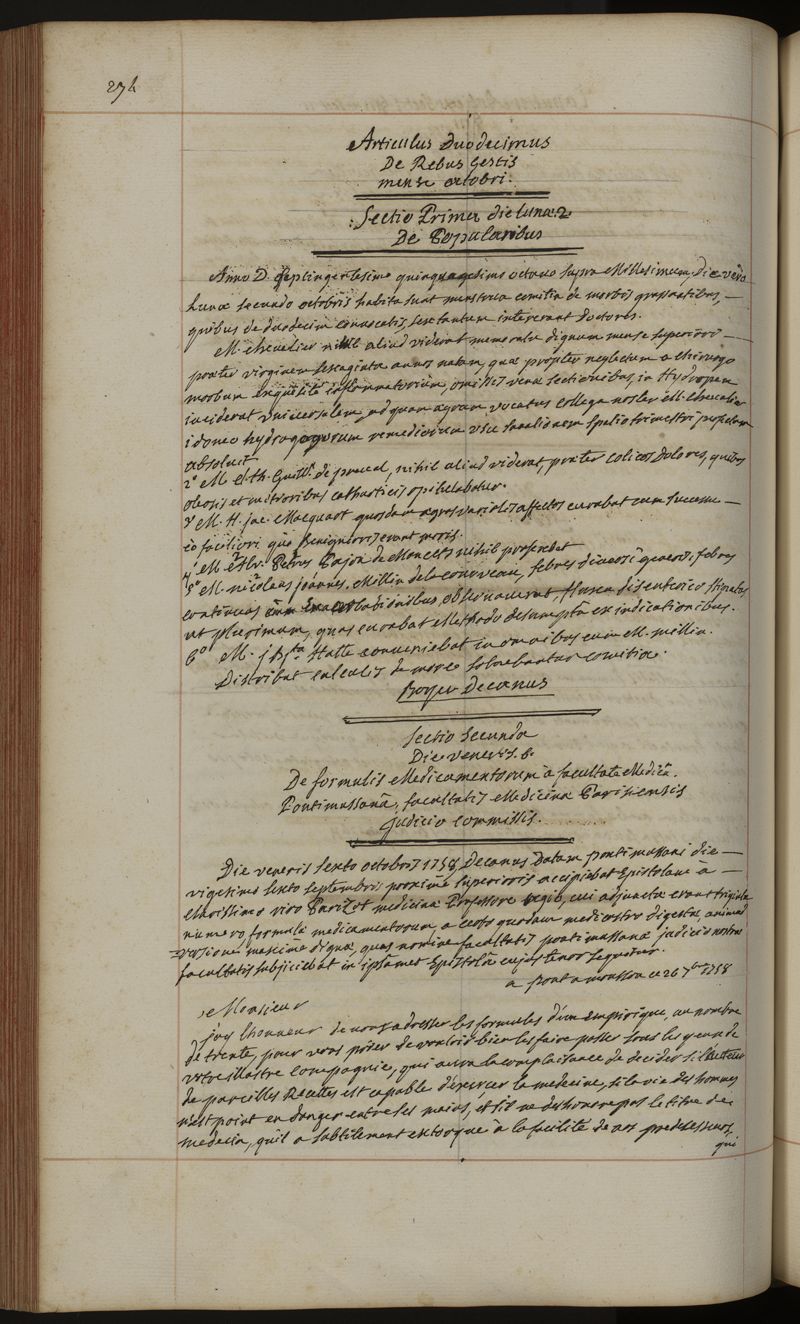 274
Articulus Duodecimus
De Rebus Gestis
mense octobri.
Sectio Prima die lunæ 2
De Popularibus
Anno D. septingentesimo quinquagesimo octavo supra Millesimum, Die vero
Lunæ secundo octobris habita sunt menstrua comitia de morbis grassantibus,
quibus de duodecim convocatis, sex tantum intererant doctores.
M. chevalier nihil aliud viderat memoratu dignum mense superiori
præter virginem sexaginta annos natam, quæ propter neglectum a chirurgo
morbum exquisite inflammatorium, omissis venæ sectionibus, in Hydropem
inciderat universalem, ad quam ægram vocatus collega noster M. chevalier
idoneo hydragogorum remediorum usu sanationem spatio trimestri
absolvit
2° M. Guill. de preval, nihil aliud viderat, præter colicos Dolores, quibus
oleosis et mitioribus catharticis opitulabatur.
3° M. H. jac. Macquart quosdam ægros variolis affectos curabat cum successu
eo faciliori quo benigniores erant morbi.
4° M. Petrus Pajon de Moncets nihil proferebat
5° M. nicolaus joannes Millin de la courveau, febres diversi generis, febres
continuas cum exacerbationibus observaverat, fluxu disenterico stipatas
ut plurimum, quas curabat Methodo desumptâ ex indicationibus.
6° M. j Bpta Hatté conveniebat in omnibus cum M. millin.
Distributis calculis de more solvebantur comitia.
Boyer Decanus
Sectio Secunda
Die veneris. 6.
De formulis Medicamentorum a facultate Medicâ
Pontimussanâ, facultatis Medicinæ Parisiensis
judicio commissis.
Die veneris sexto octobris 1758, Decanus Datam pontimussi die
vigesimo sexto septembris proxime superioris accipiebat Epistolam à
clarissimo viro Parizot medicinæ Professore regio, cui adjunctæ erant triginta
numero formulæ medicamentorum, a certo quodam medicastro digestæ, animad
=versione maximè dignæ, quas nomine facultatis pontimussanæ judicio nostræ
facultatis subjiciebat in iptâmet Epistolâ cujus tenor sequitur.
a pont a mousson ce 26 7bre 1758
Monsieur
j'ay l'honneur de vous adresser les formules d'un Empirique, au nombre
de trente, pour vous prier de vouloir bien les faire passer sous les yeux de
votre illustre compagnie, qui aura la complaisance de decider si l'auteur
de pareilles Recettes est capable d'exercer la medecine, si la vie des hommes
n'est point en danger entre ses mains, et s'il ne deshonore pas le titre de
medecin, qu'il a subtilement extorqué à la facilité de nos predecesseurs,
qui